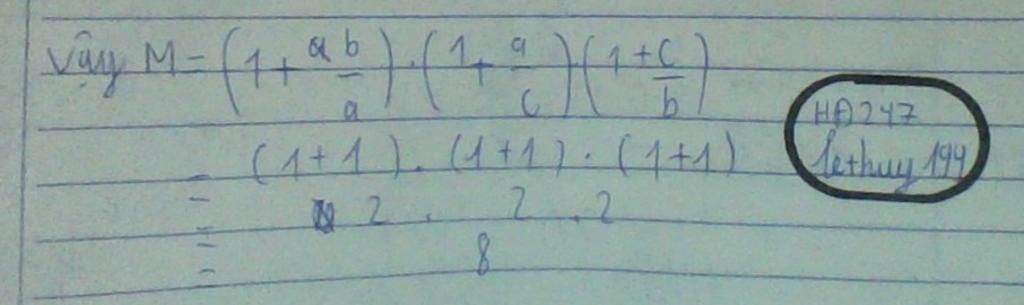 Vậy M = (1 + b/a) . (1 + a/c) (1 + c/b)
= (1 + 1) . (1 + 1) . (1 + 1)
= 2 . 2 . 2
= 8
HĐ247
lethuy 194